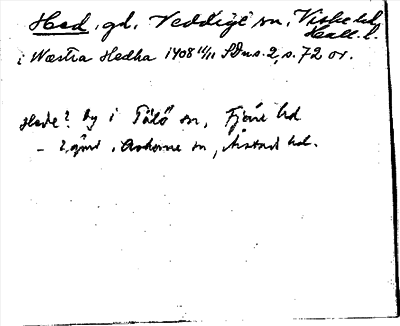 Hed, gd, Veddige sn, Viske hd,
Hall. l.
i Wæstra Hedha 1408 11/11 SDns. 2, s. 72 or.
Hede? by i Tölö sn, Fjäre hd
- 2 gård, Askome sn, Årstad hd.